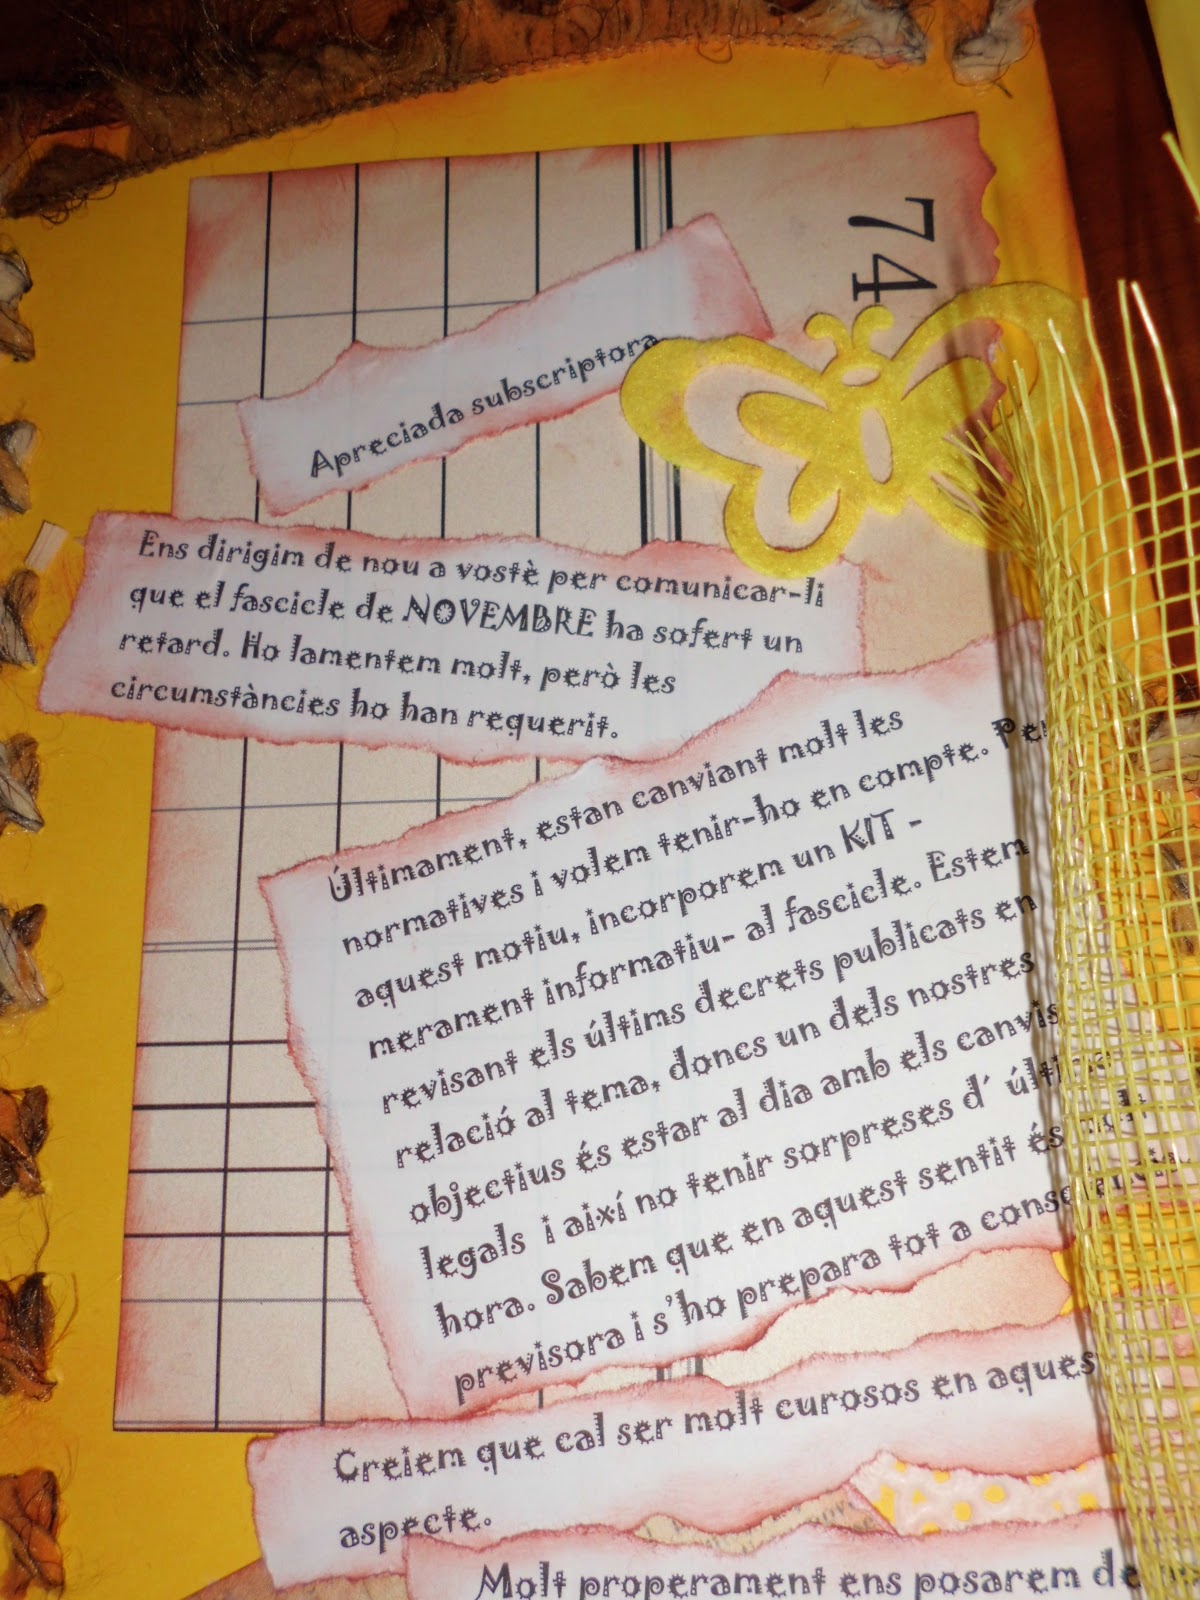 74
Apreciada subscriptora
Ens dirigim de nou a vostè per comunicar-li
que el fascicle de NOVEMBRE ha sofert un
retard. Ho lamentem molt, però les
circumstàncies ho han requerit.
Últimament, estan canviant molt les
normatives i volem tenir-ho en compte. Per
aquest motiu, incorporem un KIT -
merament informatiu- al fascicle. Estem
revisant els últims decrets publicats en
relació al tema, doncs un dels nostres
objectius és estar al dia amb els canvis
legals i així no tenir sorpreses d´ última
hora. Sabem que en aquest sentit és molt
previsora i s'ho prepara tot a
Creiem que cal ser molt curosos en aquest
aspecte.
Molt properament ens posarem de